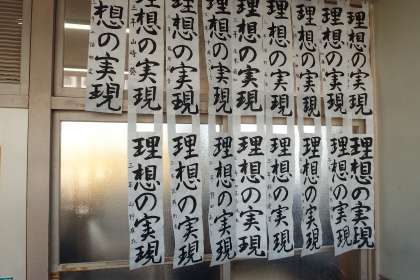 理想の実現
理想の実現
理想の実現
理想の実現
理想の実現
理想の実現
想の実現
想の実現
想の実現
理想の実現
理想の実現
理想の実現
理想の実現
理想の実現
理想の実現
理想の実現
理想の実現